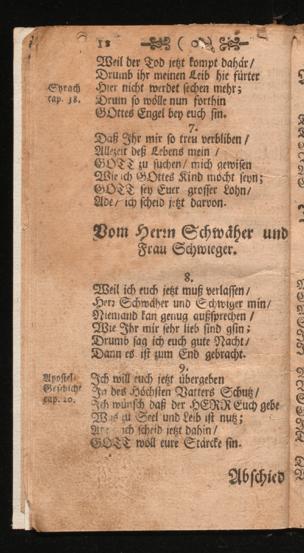 12 ( 0 )
Weil der Tod jetzt kompt dahär/
Drumb ihr meinen Leib hie fürter
Syrach Hier nicht werdet sehen mehr;
cap. 38. Drum so wölle nun forthin
GOttes Engel bey euch sin.
7.
Daß Ihr mir so treu verbliben/
Allezeit deß Lebens mein/
GOTT zu suchen/ mich gewisen
Wie ich GOttes Kind möcht seyn;
GOTT sey Euer grosser Lohn/
Ade/ ich scheid jetzt darvon.
Vom Herrn Schwäher und
Frau Schwieger.
8.
Weil ich euch jetzt muß verlassen/
Herr Schwäher und Schwiger min/
Niemand kan genug außsprechen/
Wie Ihr mir sehr lieb sind gsin;
Drumb sag ich euch gute Nacht/
Dann es ist zum End gebracht.
9.
Apostel- Ich will euch jetzt übergeben
Geschicht In des Höchsten Vatters Schutz/
cap. 20. Ich wünsch daß der HERR Euch gebe
Was zu Seel und Leib ist nutz;
Ade ich scheid jetzt dahin/
GOTT wöll eure Stärcke sin.
Abschied